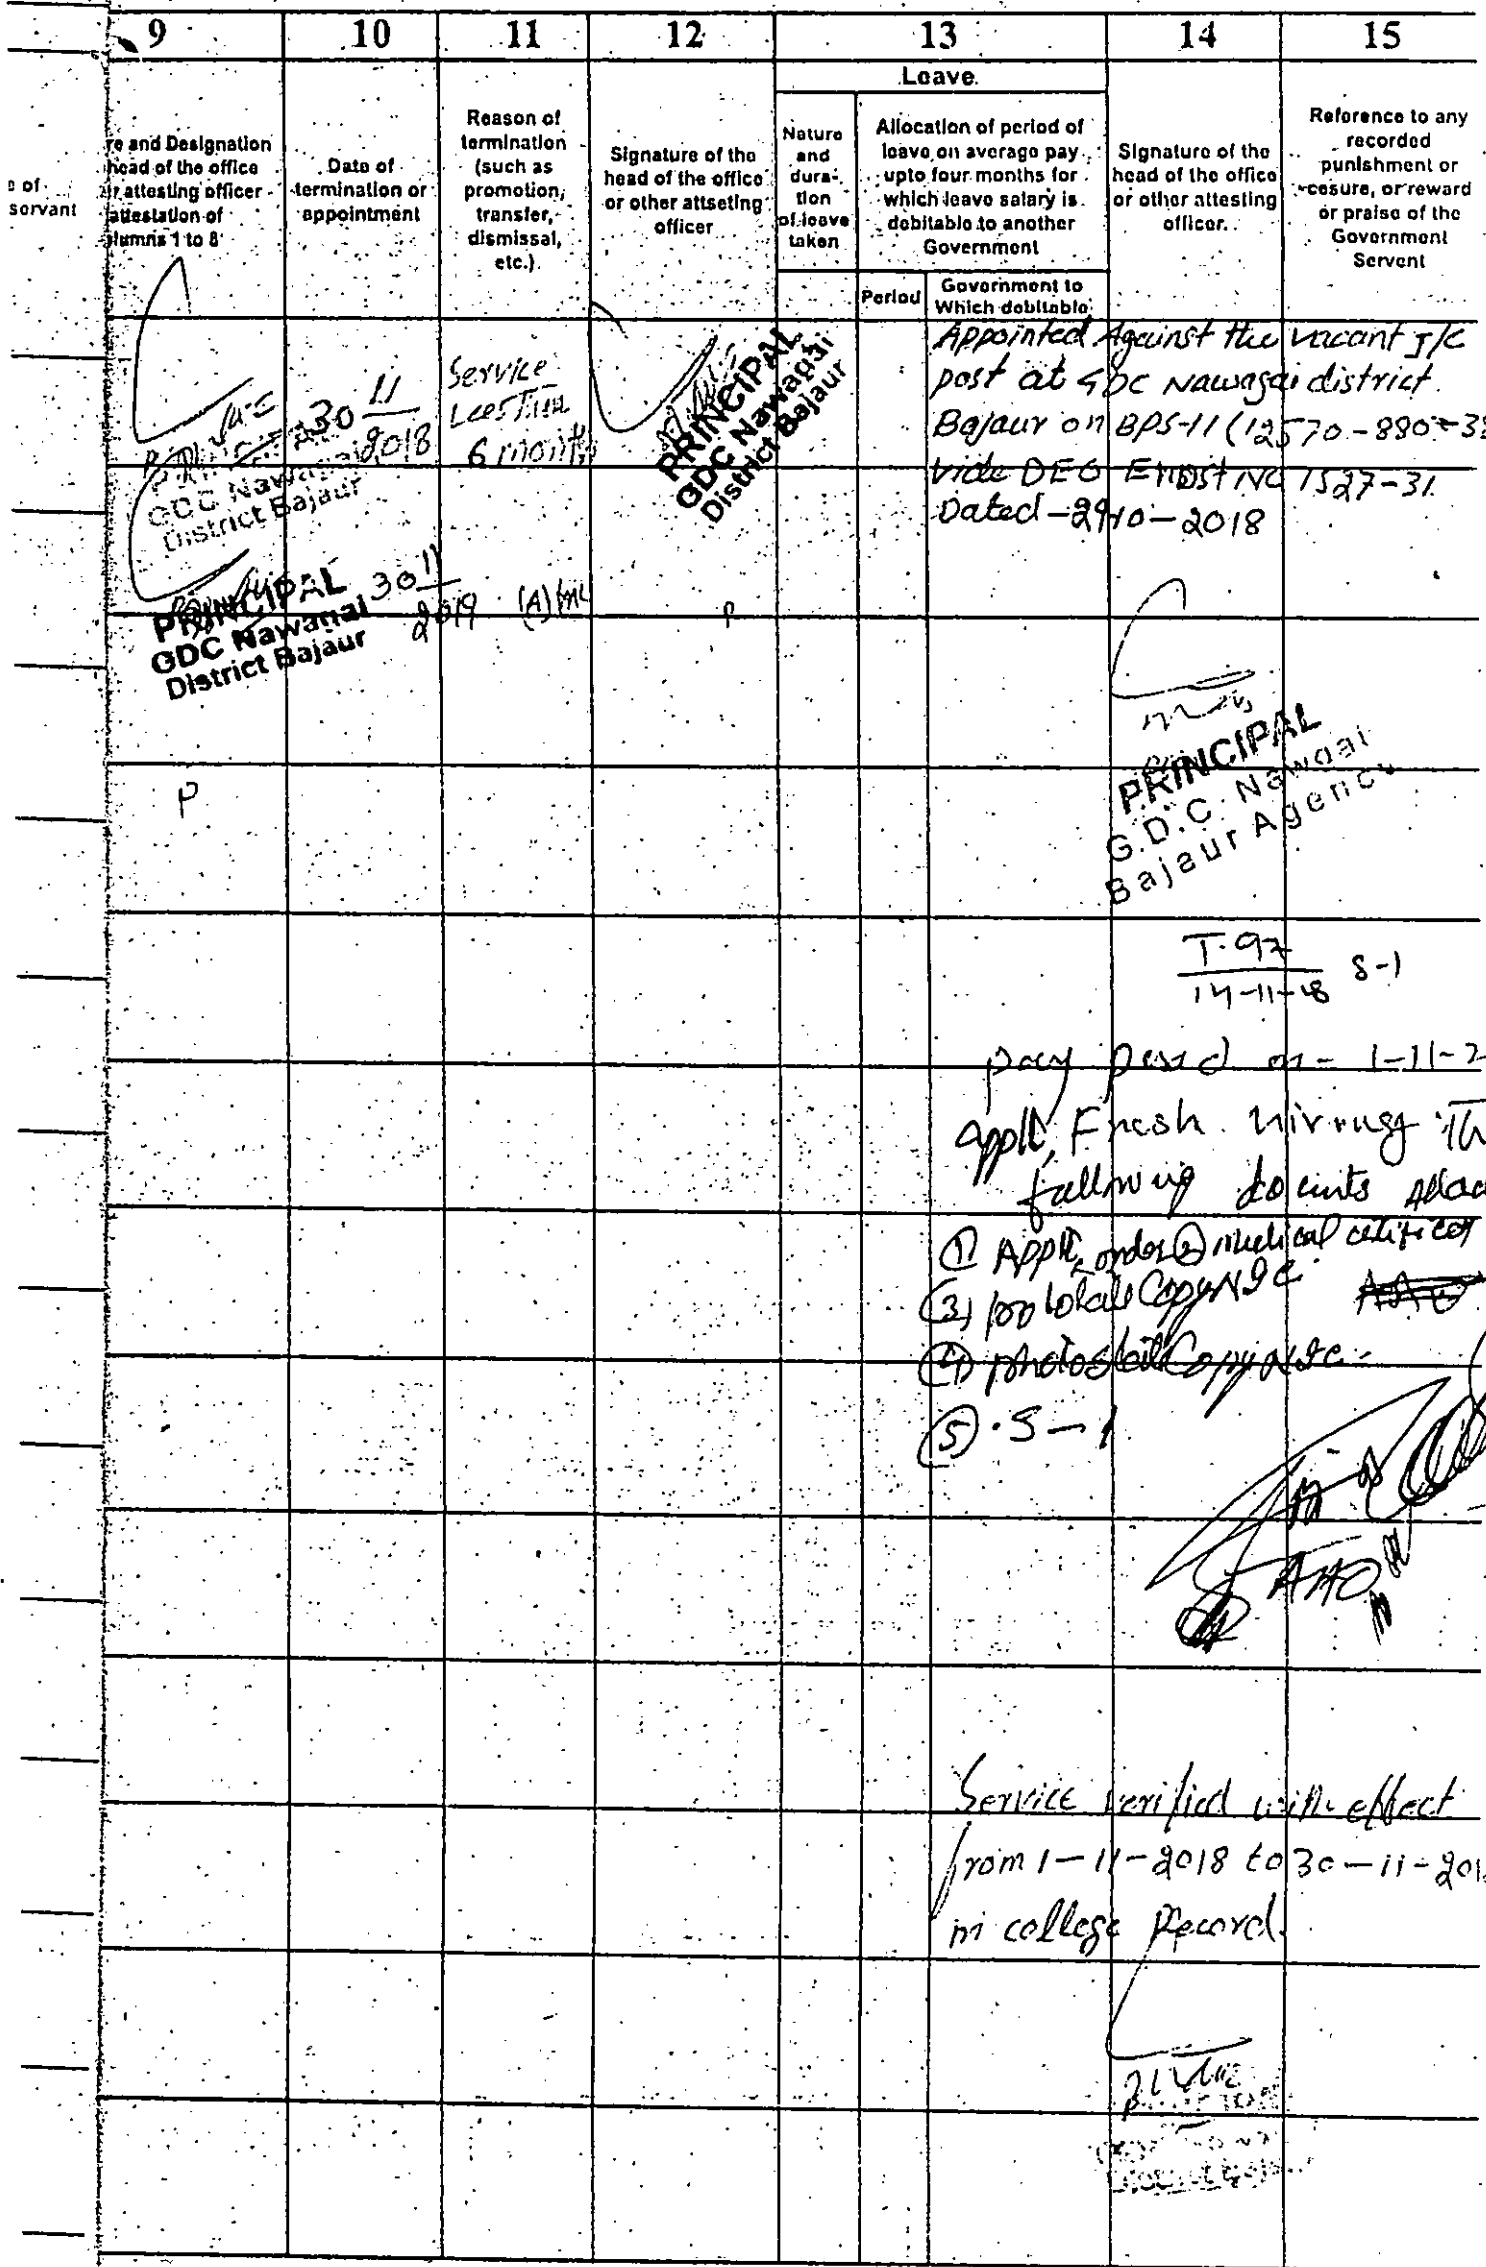 9 10 11 12 13 14 15
Leave.
re and Designation
head of the office
r attesting officer
attestation of
lumns 1 to 8
e of
servant
Date of
termination or
appointment
Reason of
termination
(such as
promotion,
transfer,
dismissal,
etc.)
Signature of the
head of the office
or other attseting
officer
Nature
and
dura-
tion
of leave
taken
Allocation of period of
leave on average pay
upto four months for
which leave salary is
debitable to another
Government
Period
Government to
Which debitable
Signature of the
head of the office
or other attesting
officer.
Reference to any
recorded
punishment or
cesure, or reward
or praise of the
Government
Servent
GDC Nawagai
District Bajaur
30 11
2018
Service
Less Than
6 month
PRINCIPAL
GDC Nawagai
District Bajaur
Appointed Against the vacant J/C
post at GDC Nawagai district
Bajaur on BPS-11 (12570-880-38
vide DEO Endst NO 1527-31
Dated-29-10-2018
PRINCIPAL
GDC Nawagai
District Bajaur
30 11
2019
(A) Inc
P
PRINCIPAL
G.D.C. Nawgai
Bajaur Agency
P
T.97
14-11-18 S-1
pay on - 1-11-2
Appit, Fresh
following
① order ② medical
③ Copy NIC
④ photostat Copy NIC
⑤ S-1
AAO
Service verified with effect
from 1-11-2018 to 30-11-201
in college Record.